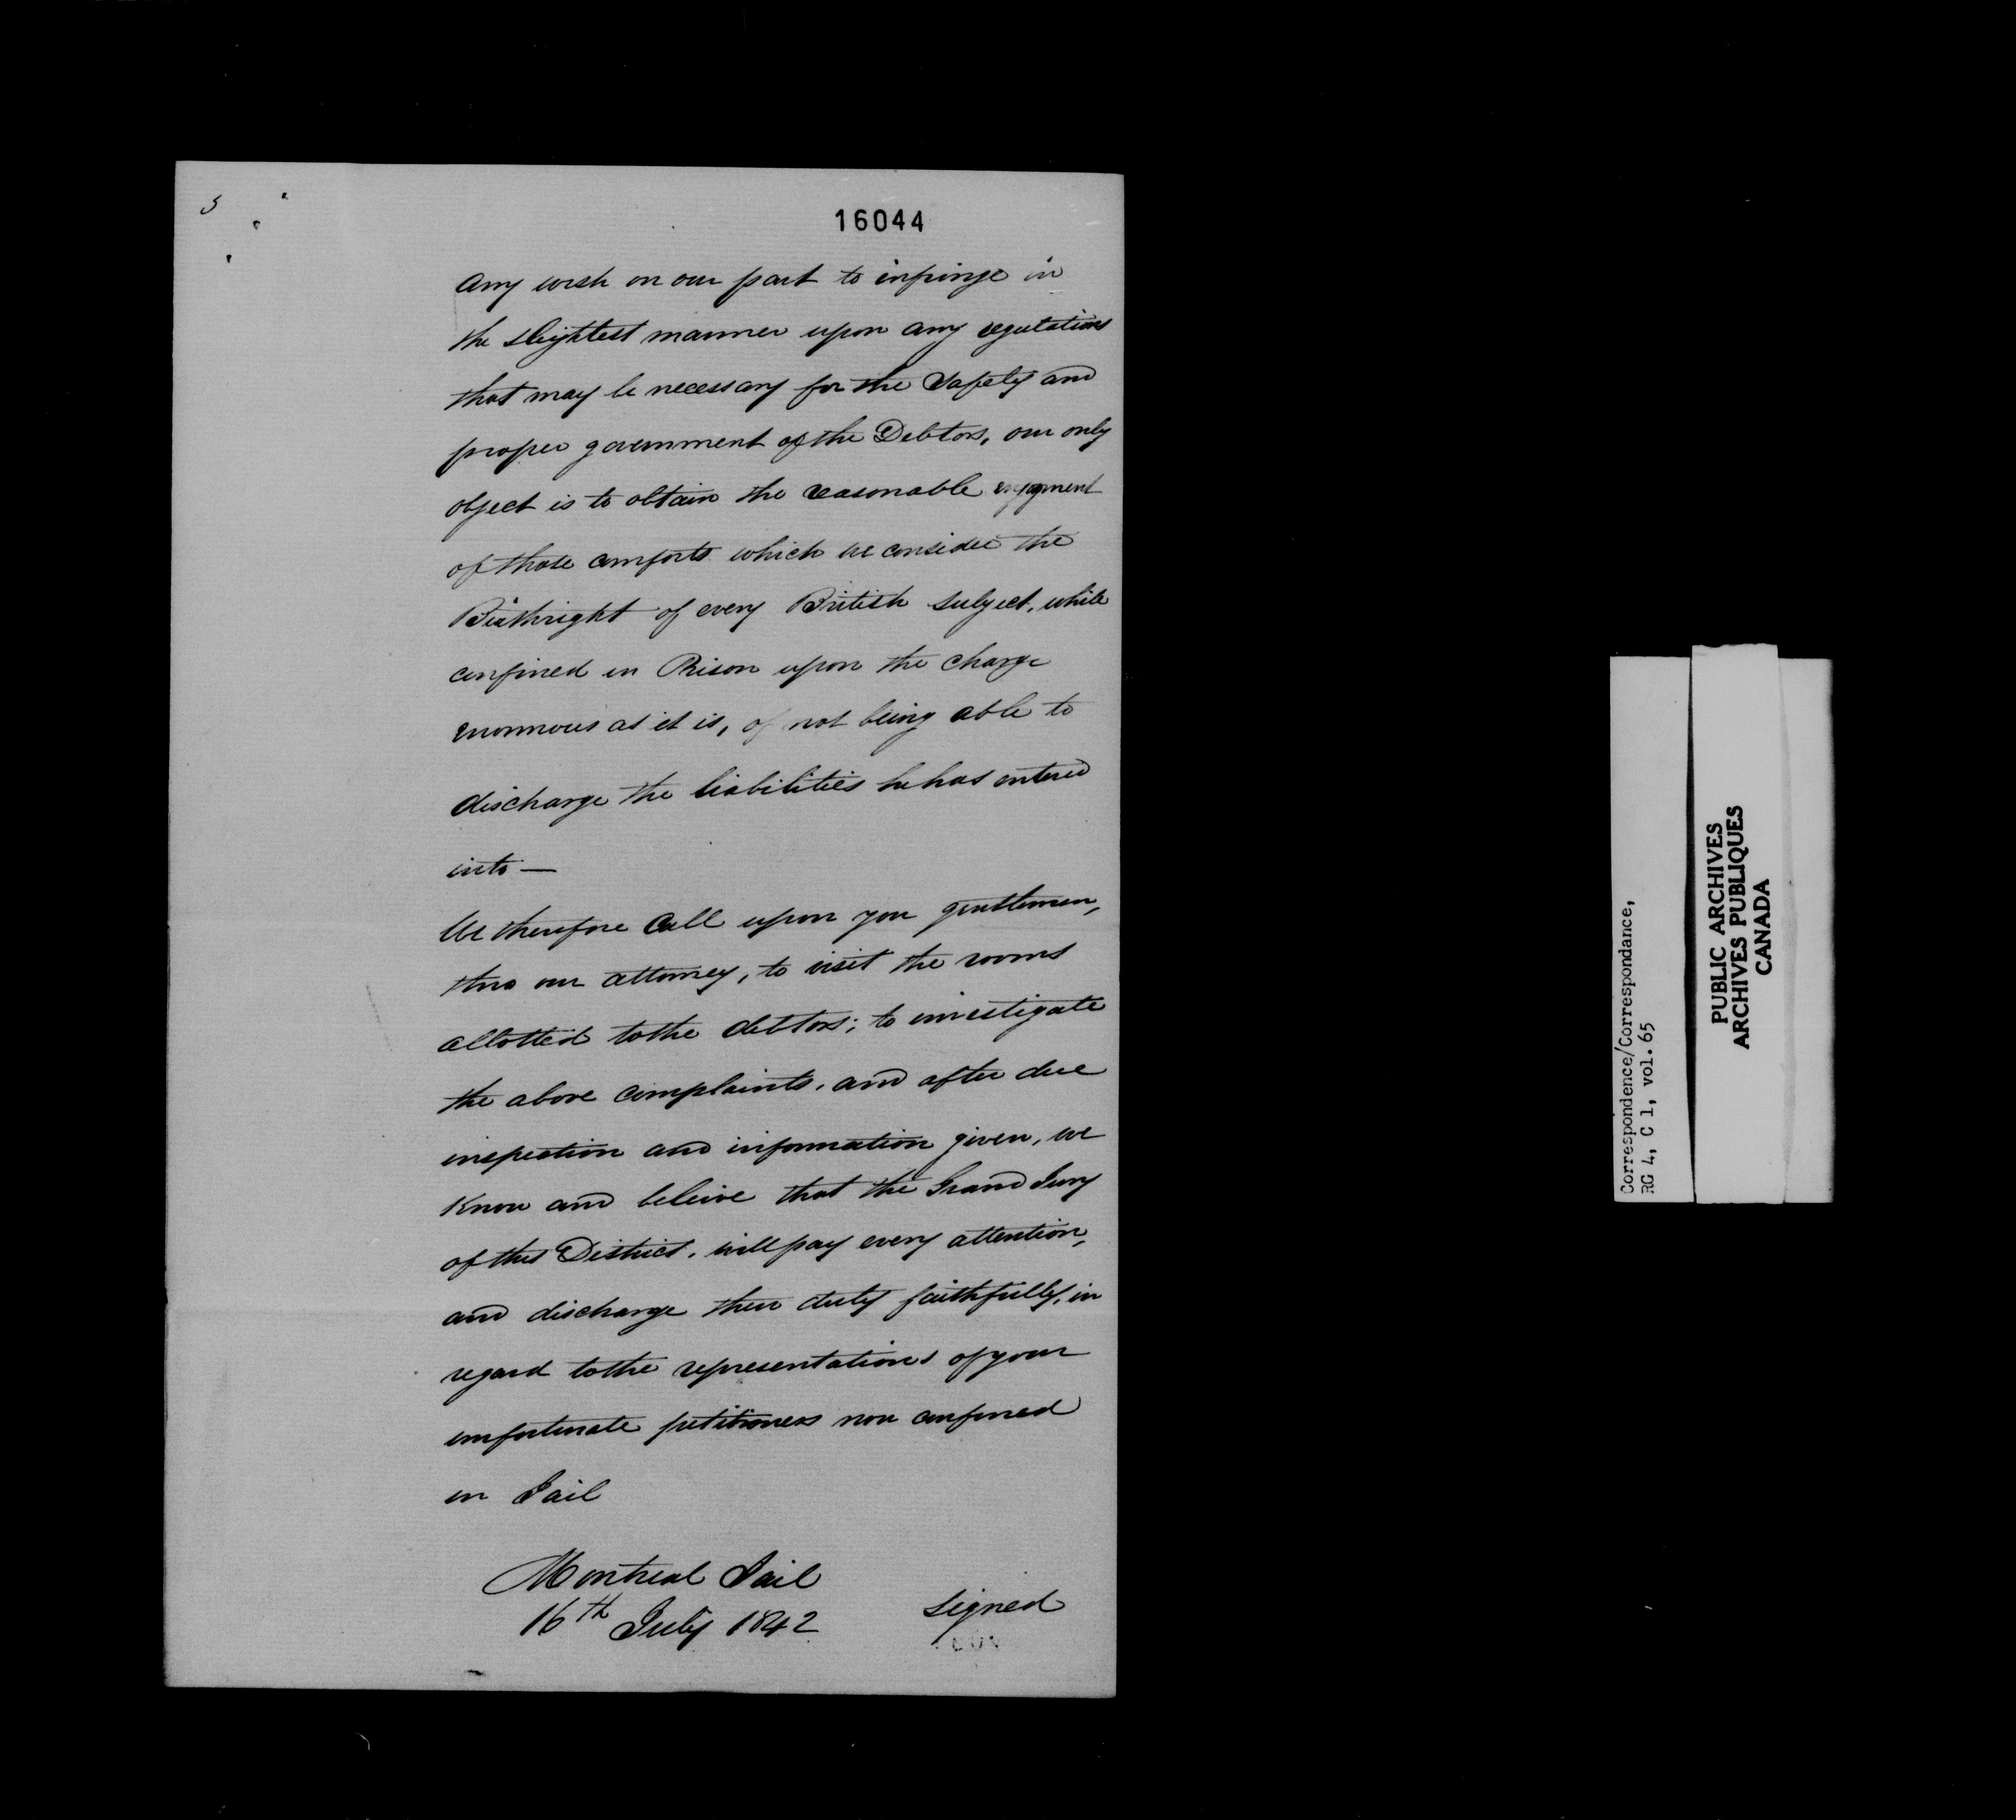 5
16044
any wish on our part to infringe in
the slightest manner upon any regulations
that may be necessary for the Safety and
proper government of the Debtors, our only
object is to obtain the reasonable enjoyment
of those comforts which we consider the
Birthright of every British subject, while
confined in Prison upon the charge
enormous as it is, of not being able to
discharge the liabilities he has entered
into —
We therefore Call upon you gentlemen,
thro our attorney, to visit the rooms
allotted to the debtors; to investigate
the above complaints, and after due
inspection and information given, we
Know and beleive that the Grand Jury
of this District, will pay every attention,
and discharge their duty faithfully, in
regard to the representations of your
unfortunate petitioners now confined
in Jail
Montreal Jail
16th July 1842
signed
Correspondence/Correspondance,
RG 4, C 1, vol. 65
PUBLIC ARCHIVES
ARCHIVES PUBLIQUES
CANADA